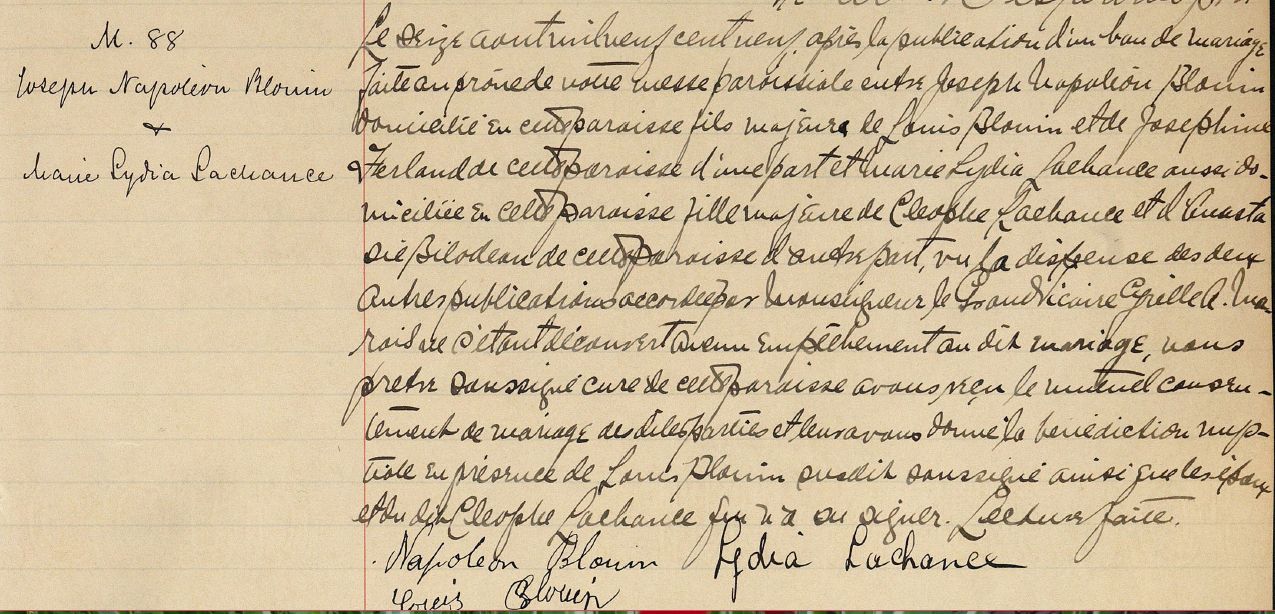 M. 88
Joseph Napoléon Blouin
&
Marie Lydia Lachance
Le seize aout mil neuf cent neuf, après la publication d'un ban de mariage
faite au prône de notre messe paroissiale entre Joseph Napoléon Blouin
domicilié en cette paroisse fils majeur de Louis Blouin et de Josephine
Ferland de cette paroisse d'une part et Marie Lydia Lachance aussi do-
miciliée en cette paroisse fille majeure de Cleophe Lachance et d'Anasta
sie Bilodeau de cette paroisse d'autre part, vu la dispense des deux
autres publications accordée par Monseigneur le Grand Vicaire Cyrille A. Ma-
rois ne s'étant découvert aucun empêchement au dit mariage, nous
pretre soussigné curé de cette paroisse avons reçu le mutuel consen-
tement de mariage des dites parties et leur avons donné la bénédiction nup-
tiale en présence de Louis Blouin susdit soussigné ainsi que les époux
et du dit Cleophe Lachance qui n'a su signer. Lecture faite.
Napoléon Blouin Lydia Lachance
Louis Blouin